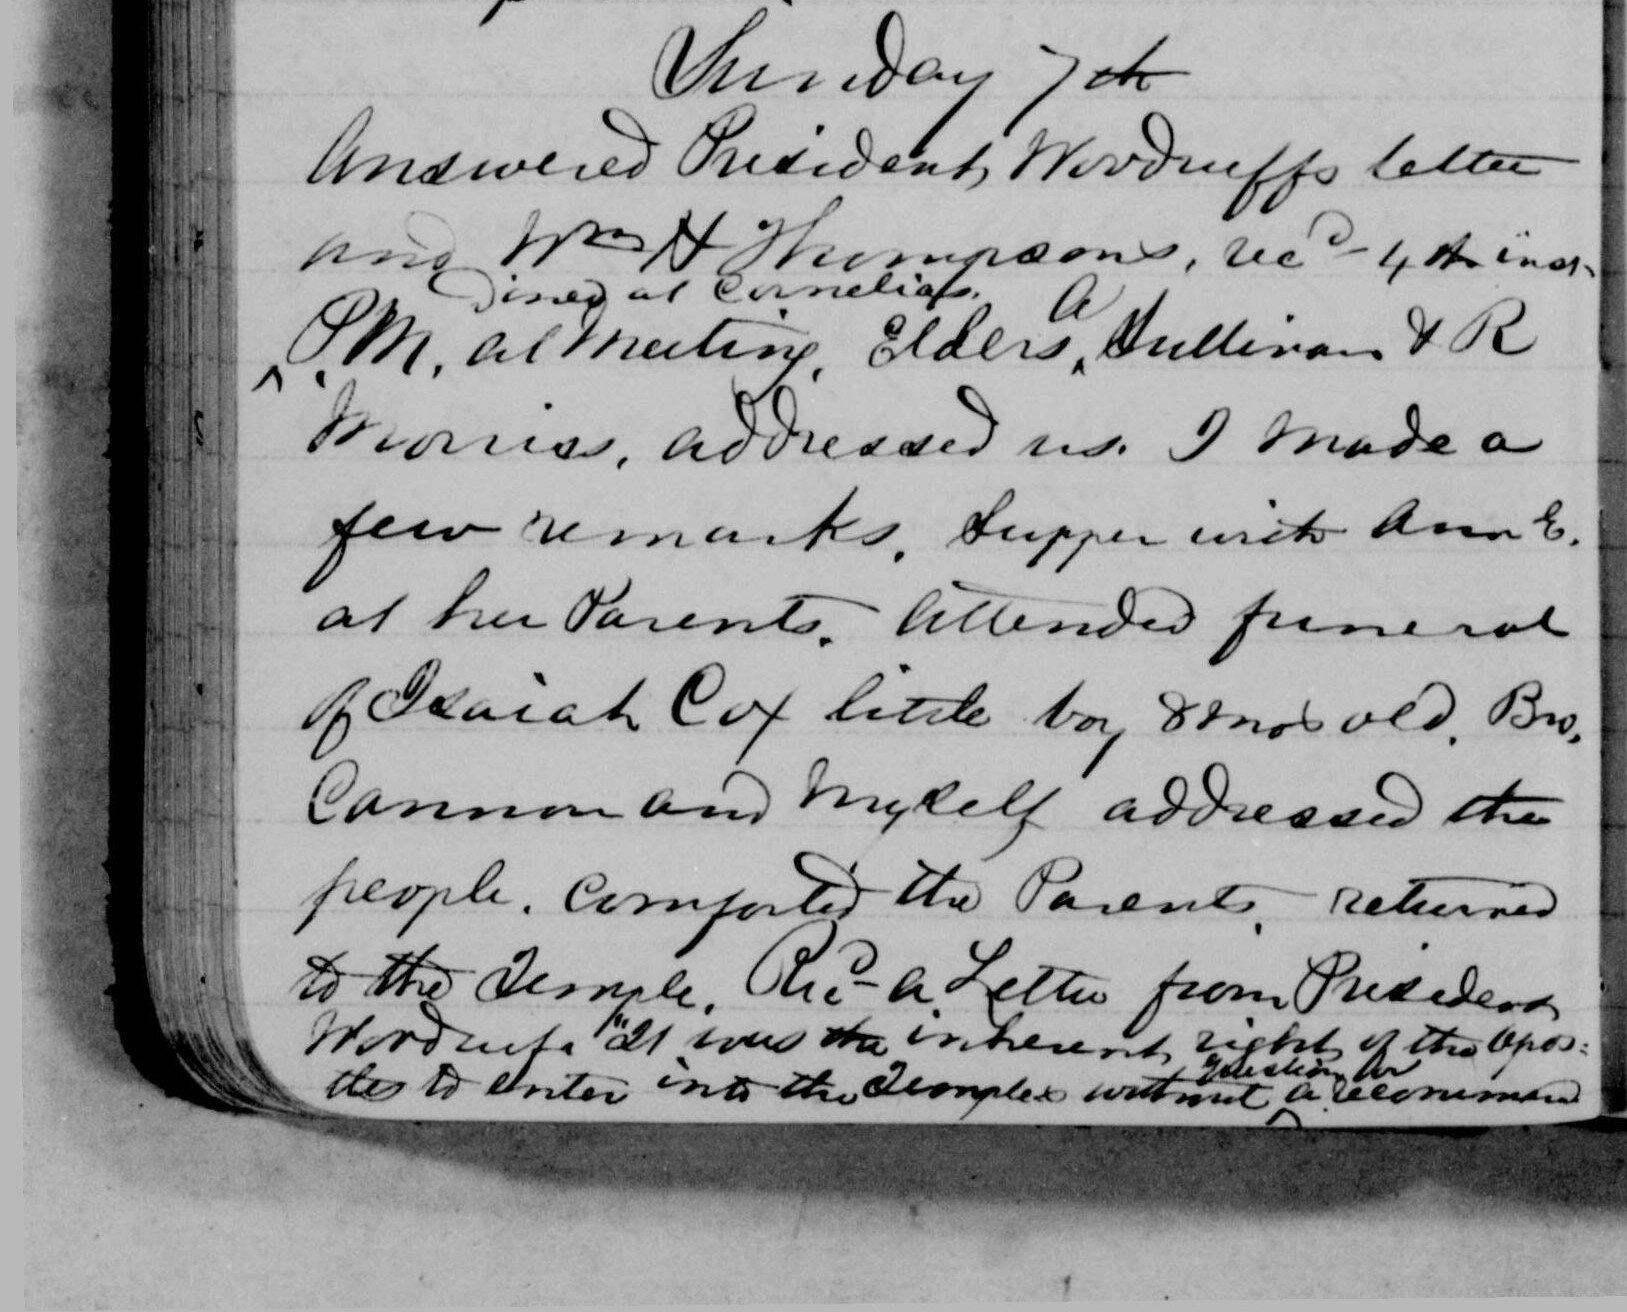 Sunday 7th
Answered President Woodruffs letter
and Wm H Thompsons, recd 4th inst.
Dined at Cornelias.
P.M. at Meeting, Elders, A Sullivan & R
Morriss, addressed us. I made a
few remarks. Supper with Ann E.
at her Parents. Attended funeral
of Isaiah Cox little boy 8 mos old. Bro.
Cannon and Myself addressed the
people. Comforted the Parents. returned
to the Temple. Recd a Letter from President
Woodruff. "It was the inherent right of the Apos=
question or
tles to enter into the Temples without a recommend